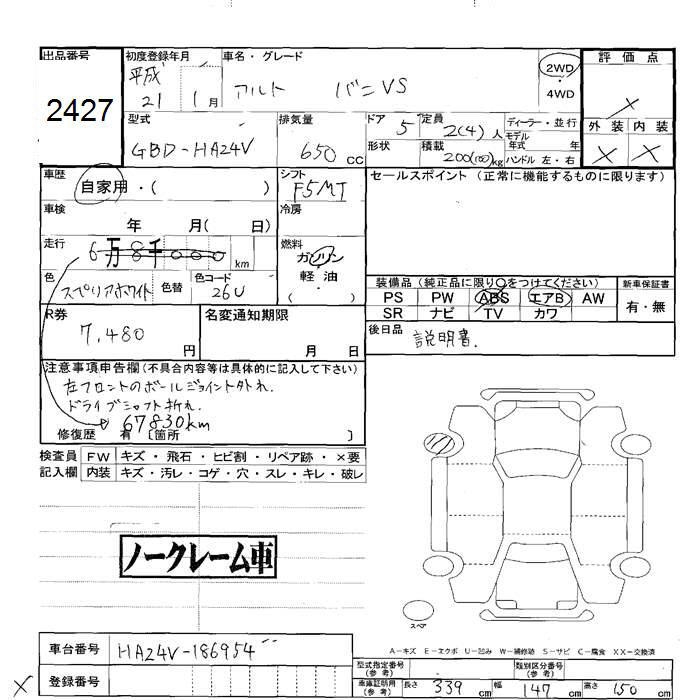 出品番号 初度登録年月 車名・グレード 評価点
2427 平成 21 1月 アルト バン VS 2WD ・ 4WD X
型式 排気量 ドア 5 定員 2(4)人 ディーラー・並行 外装 内装
GBD-HA24V 650 CC 形状 積載 200(100)kg モデル年式 年 ハンドル 左・右 X X
車歴 自家用・( ) シフト F5MT セールスポイント (正常に機能するものに限ります)
車検 年 月( 日) 冷房
走行 6万8千000 km 燃料 ガソリン
軽油
( )
色 スペリアホワイト 色替 色コード 26U
装備品 (純正品に限り○をつけてください) 新車保証書
PS PW ABS エアB AW 有・無
SR ナビ TV カワ
R券 7,480 円 名変通知期限 月 日
後日品 説明書.
注意事項申告欄(不具合内容等は具体的に記入して下さい)
左フロントのボールジョイント外れ.
ドライブシャフト折れ.
67830km
修復歴 有 〔箇所 〕
検査員 FW キズ・飛石・ヒビ割・リペア跡・×要
記入欄 内装 キズ・汚レ・コゲ・穴・スレ・キレ・破レ
ノークレーム車
スペア
A-キズ E-エクボ U-凹み W-補修跡 S-サビ C-腐食 XX-交換済
車台番号 HA24V-186954
登録番号
X
型式指定番号(参考) 類別区分番号(参考)
車庫証明用(参考) 長さ 339 cm 幅 147 cm 高さ 150 cm